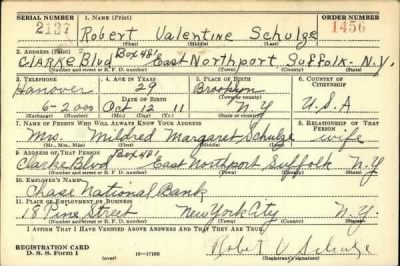 SERIAL NUMBER 1. NAME (Print) ORDER NUMBER
2127 Robert Valentine Schulze 1456
(First) (Middle) (Last)
2. ADDRESS (Print)
Clarke Blvd Box 481 East Northport Suffolk N.Y.
(Number and street or R. F. D. number) (Town) (County) (State)
3. TELEPHONE 4. AGE IN YEARS 5. PLACE OF BIRTH 6. COUNTRY OF CITIZENSHIP
Hanover 29 Brooklyn
DATE OF BIRTH (Town or county)
6-2000 Oct 12 11 N.Y U.S.A
(Exchange) (Number) (Mo.) (Day) (Yr.) (State or country)
7. NAME OF PERSON WHO WILL ALWAYS KNOW YOUR ADDRESS 8. RELATIONSHIP OF THAT PERSON
Mrs. Mildred Margaret Schulze wife
(Mr., Mrs., Miss) (First) (Middle) (Last)
9. ADDRESS OF THAT PERSON
Clarke Blvd Box 481 East Northport Suffolk N.Y
(Number and street or R. F. D. number) (Town) (County) (State)
10. EMPLOYER'S NAME
Chase National Bank
11. PLACE OF EMPLOYMENT OR BUSINESS
18 Pine Street New York City N.Y.
(Number and street or R. F. D. number) (Town) (County) (State)
I AFFIRM THAT I HAVE VERIFIED ABOVE ANSWERS AND THAT THEY ARE TRUE.
REGISTRATION CARD
D. S. S. Form 1 (over) 16-17105 Robert V Schulze